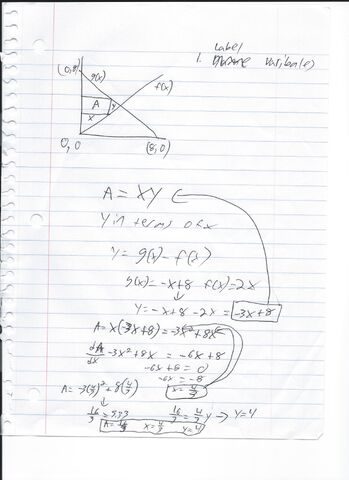 Label
1. variable(s)
(0,8)
g(x)
f(x)
A
y
x
0,0
(8,0)
A = XY
Y in terms of x
Y = g(x) - f(x)
g(x) = -x+8 f(x) = 2x
Y = -x+8 -2x = -3x+8
A = x(-3x+8) = -3x²+8x
dA/dx -3x²+8x = -6x+8
-6x+8 = 0
-6x = -8
x = 4/3
A = -3(4/3)²+8(4/3)
16/3 = 5.33
16/3 = 4/3 y → y=4
A = 16/3 x = 4/3 y=4